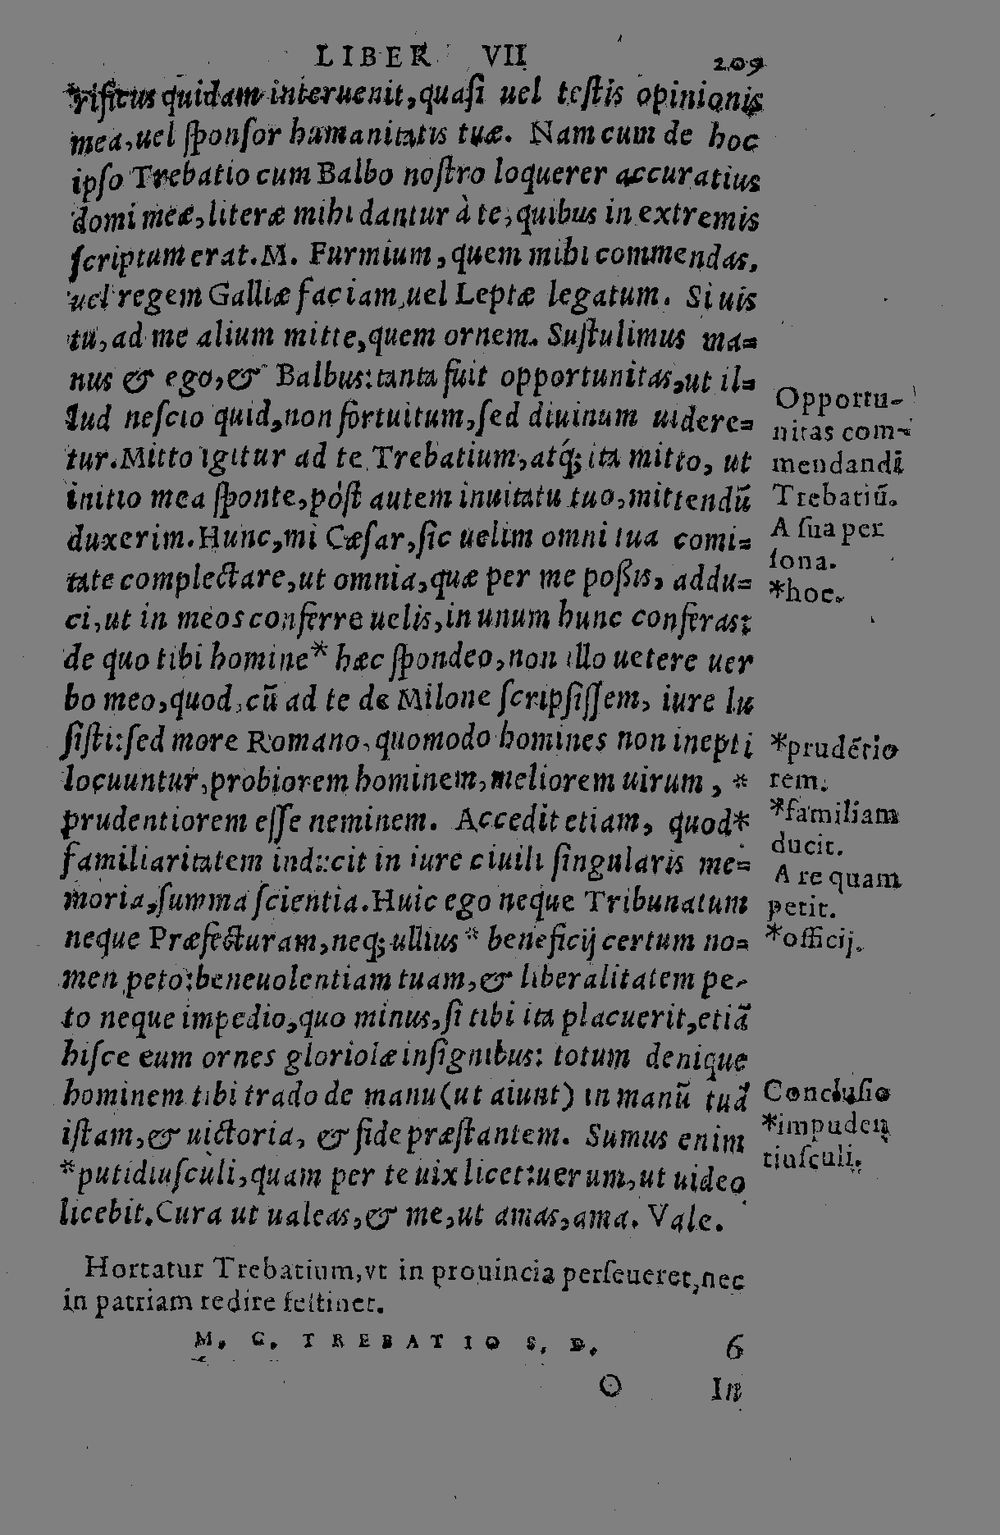 LIBER VII
209
risicus quidam interuenit,quasi uel testis opinionis
mea,uel sponsor humanitatis tuæ. Nam cum de hoc
ipso Trebatio cum Balbo nostro loquerer accuratius
domi meæ,literæ mihi dantur à te,quibus in extremis
scriptum erat.M. Furmium,quem mihi commendas,
uel regem Galliæ faciam,uel Leptæ legatum. Si uis
tu,ad me alium mitte,quem ornem. Sustulimus ma=
nus & ego,& Balbus:tanta fuit opportunitas,ut il=
lud nescio quid,non fortuitum,sed diuinum uidere=
tur.Mitto igitur ad te Trebatium,atq́; ita mitto, ut
initio mea sponte,póst autem inuitatu tuo,mittendū
duxerim.Hunc,mi Cæsar,sic uelim omni tua comi=
tate complectare,ut omnia,quæ per me possis, addu=
ci,ut in meos conferre uelis,in unum hunc conferas:
de quo tibi homine* hæc spondeo,non illo uetere uer
bo meo,quod,cū ad te de Milone scripsissem, iure lu
sisti:sed more Romano,quomodo homines non inepti
locuuntur,probiorem hominem,meliorem uirum, *
prudentiorem esse neminem. Accedit etiam, quod*
familiaritatem inducit in iure ciuili singularis me=
moria,summa scientia.Huic ego neque Tribunatum
neque Præfecturam,neq; ullius* beneficij certum no=
men peto:beneuolentiam tuam,& liberalitatem pe-
to neque impedio,quo minus,si tibi ita placuerit,etiā
hisce eum ornes gloriolæ insignibus: totum denique
hominem tibi trado de manu(ut aiunt) in manū tuā
istam,& uictoria, & fide præstantem. Sumus enim
*putidiusculi,quam per te uix licet:uerum,ut uideo
licebit.Cura ut ualeas,& me,ut amas,ama. Vale.
Opportu-
nitas com-
mendandi
Trebatiū.
A sua per
sona.
*hoc.
*prudētio
rem.
*familiam
ducit.
A re quam
petit.
*officij.
Conclusio
*impuden
tiusculi.
Hortatur Trebatium,vt in prouincia perseueret,nec
in patriam redire festinet.
M. C. TREBATIO S. D. 6
O In